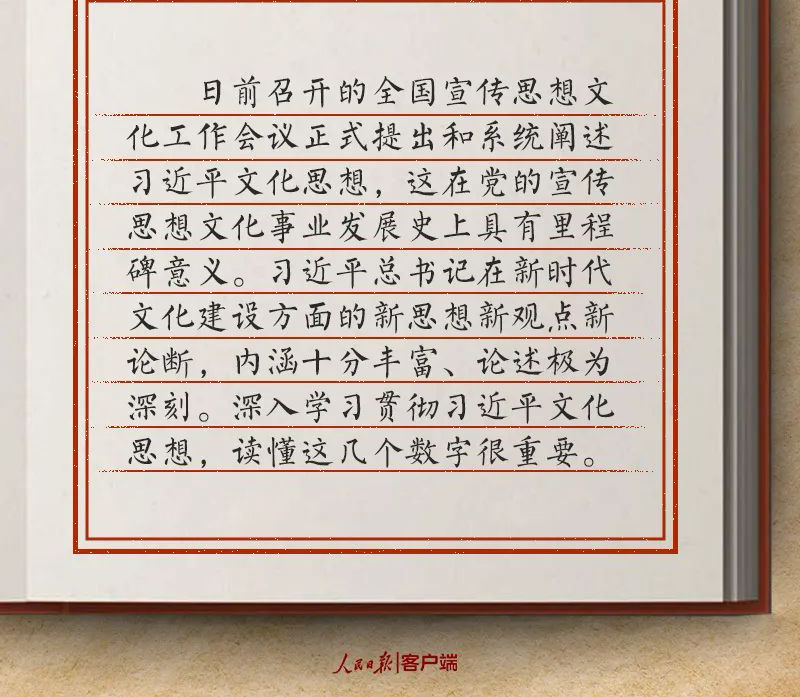 日前召开的全国宣传思想文
化工作会议正式提出和系统阐述
习近平文化思想，这在党的宣传
思想文化事业发展史上具有里程
碑意义。习近平总书记在新时代
文化建设方面的新思想新观点新
论断，内涵十分丰富、论述极为
深刻。深入学习贯彻习近平文化
思想，读懂这几个数字很重要。
人民日报|客户端